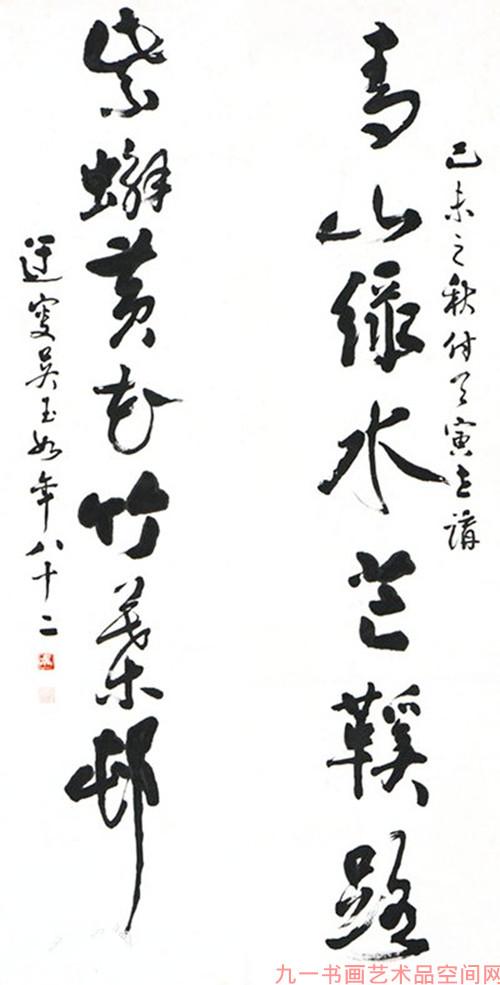 己未之秋付天寅立講
青山綠水芒鞵路
紫蟹黃花竹葉邨
迂叟吳玉如年八十二
九一书画艺术品空间网